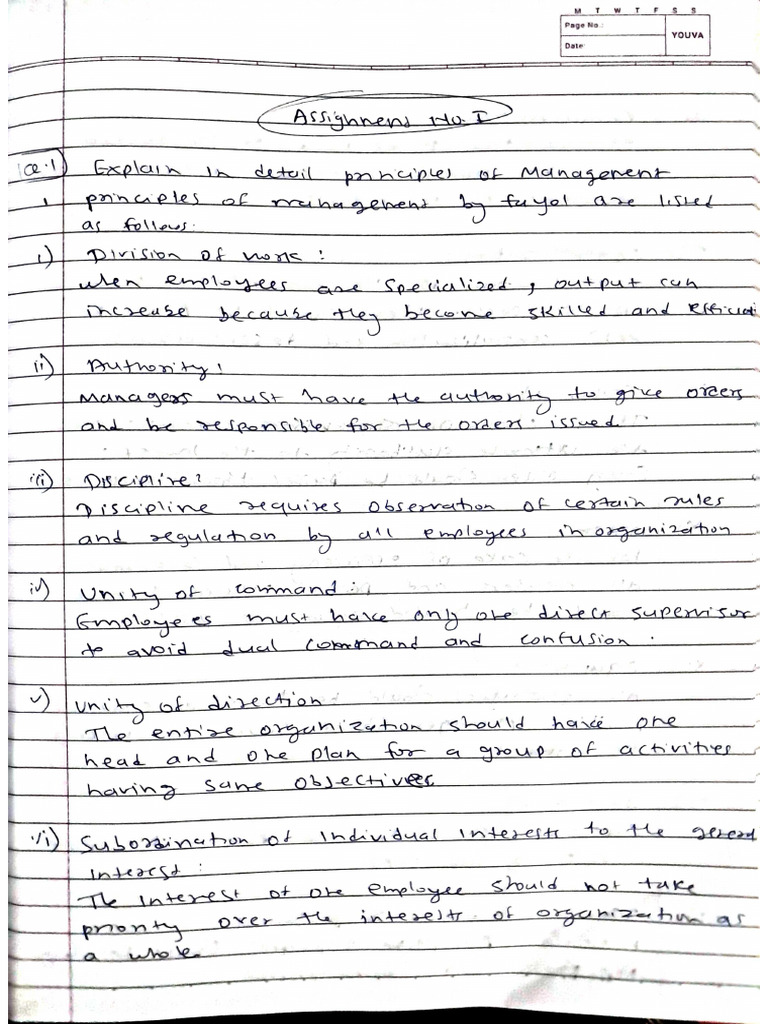 M T W T F S S
Page No.:
YOUVA
Date:
Assignment No. I
Q.1 Explain in detail principles of Management
principles of management by fayol are listed
as follows.
i) Division of work :
when employees are specialized, output can
increase because they become skilled and efficient
ii) Authority :
Managers must have the authority to give orders
and be responsible for the orders issued.
iii) Discipline :
Discipline requires observation of certain rules
and regulation by all employees in organization
iv) Unity of command :
Employees must have only one direct supervisor
to avoid dual command and confusion.
v) Unity of direction
The entire organization should have one
head and one plan for a group of activities
having same objectives
vi) Subordination of individual interests to the general
interest :
The interest of one employee should not take
priority over the interests of organization as
a whole